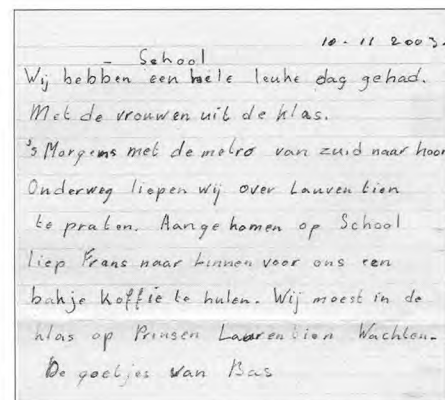 10-11 2003.
- School
Wij hebben een hele leuke dag gehad.
Met de vrouwen uit de klas.
's Morgens met de metro van zuid naar hoor
Onderweg liepen wij over Lauventien
te praten. Aangekomen op School
liep Frans naar binnen voor ons een
bakje koffie te hulen. Wij moest in de
klas op Prinsen Laurentien Wachten.
De goetjes van Bas